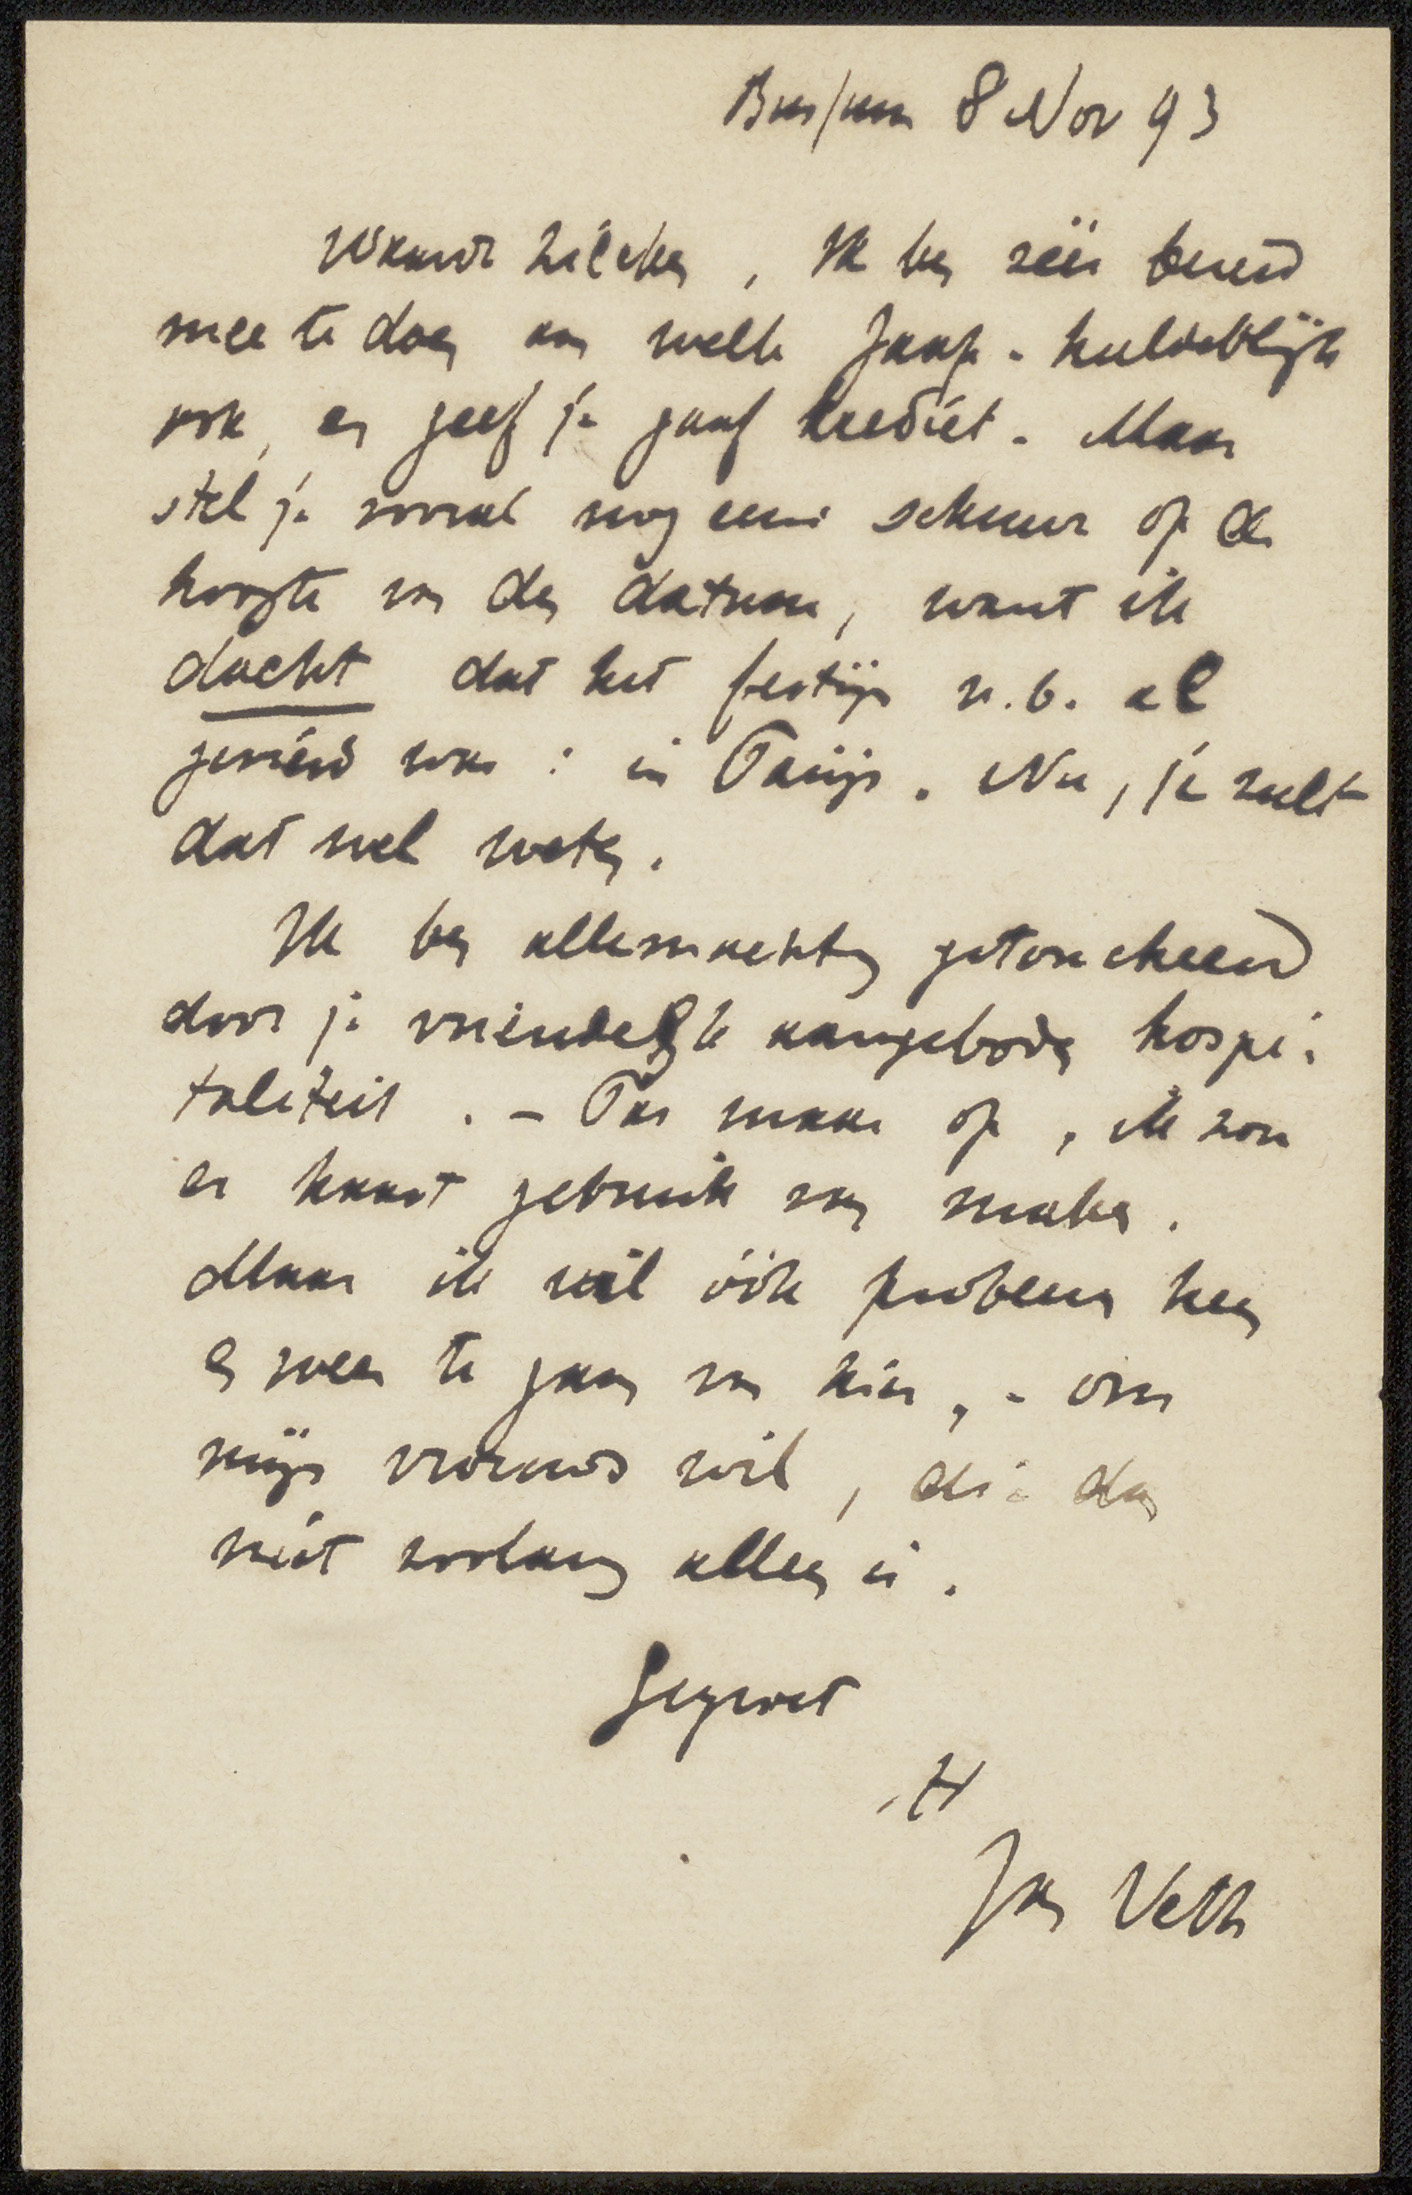 Bussum 8 Nov 93
Waarde Zilcken, Ik ben zéér bereid
mee te doen aan welk Jaap-huldeblijk
ook, en geef je gaaf krediet. Maar
stel je vooral nog eens secuur op de
hoogte van den datum, want ik
dacht dat het festijn n.b. al
gevierd was: in Parijs. Nu, je zult
dat wel weten.
Ik ben allemachtig getoucheerd
door je vriendelijk aangeboden hospi-
taliteit. - Pas maar op, ik zou
er haast gebruik van maken.
Maar ik wil óók probeeren heen
en weer te gaan van hier, - om
mijn vrouws wil, die dan
niet zoolang alleen is.
Gegroet
tt
Jan Veth